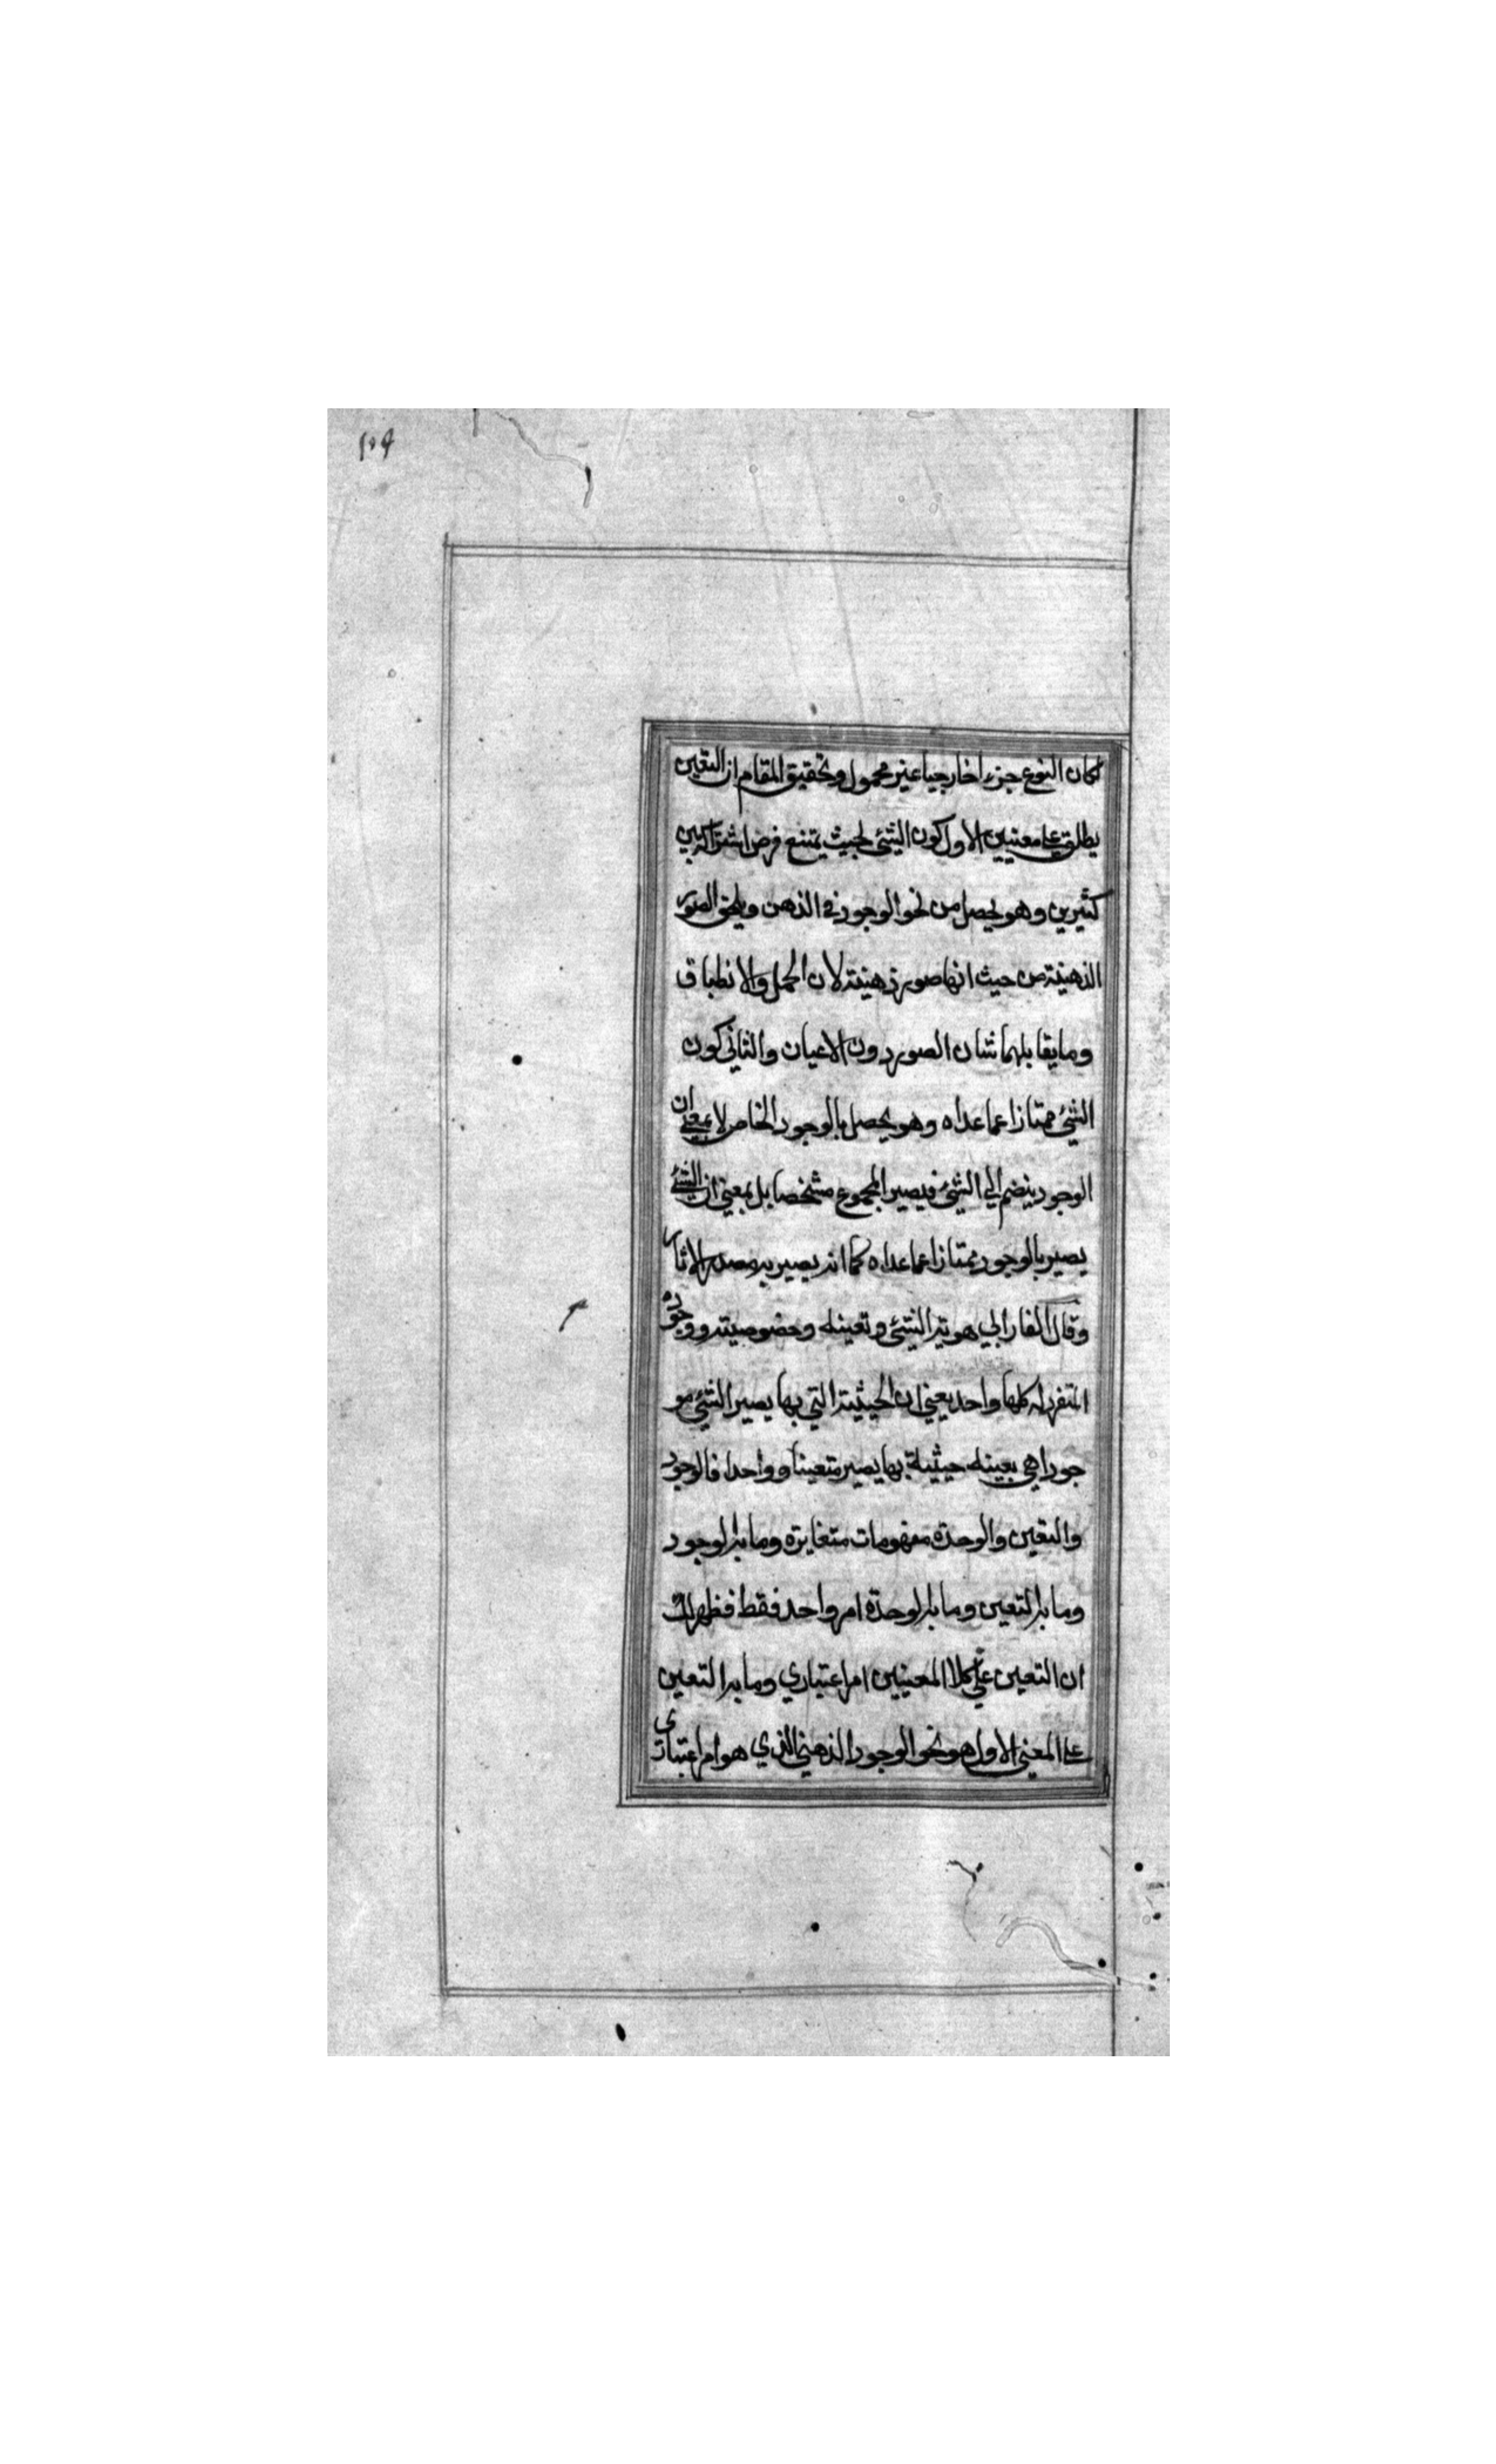 ١٠٩
لكان النوع جزءا خارجيا غير محمول وتحقيق المقام ان التعين
يطلق على معنيين الاول كون الشئ بحيث يمتنع فرض اشتراكه بين
كثيرين وهو يحصل من نحو الوجود في الذهن ويلحق الصور
الذهنية من حيث انها صور ذهنية لان الحمل والانطباق
وما يقابلهما شان الصور دون الاعيان والثاني كون
الشئ ممتازا عما عداه وهو يحصل بالوجود الخاص لا بمعنى ان
الوجود ينضم الي الشئ فيصير المجموع مشخصا بل بمعنى ان الشئ
يصير بالوجود ممتازا عما عداه كما انه يصير به مصدر الاثار
وقال الفارابي هوية الشئ وتعينه وخصوصيته ووجوده
المتفرد له كلها واحد يعني ان الحيثية التي بها يصير الشئ مو
جودا هي بعينه حيثية بها يصير متعينا وواحدا فالوجود
والتعين والوحدة مفهومات متغايرة وما به الوجود
وما به التعين وما به الوحدة امر واحد فقط فظهر لك
ان التعين على كلا المعنيين امر اعتباري وما به التعين
على المعنى الاول هو نحو الوجود الذهني الذي هو امر اعتباري